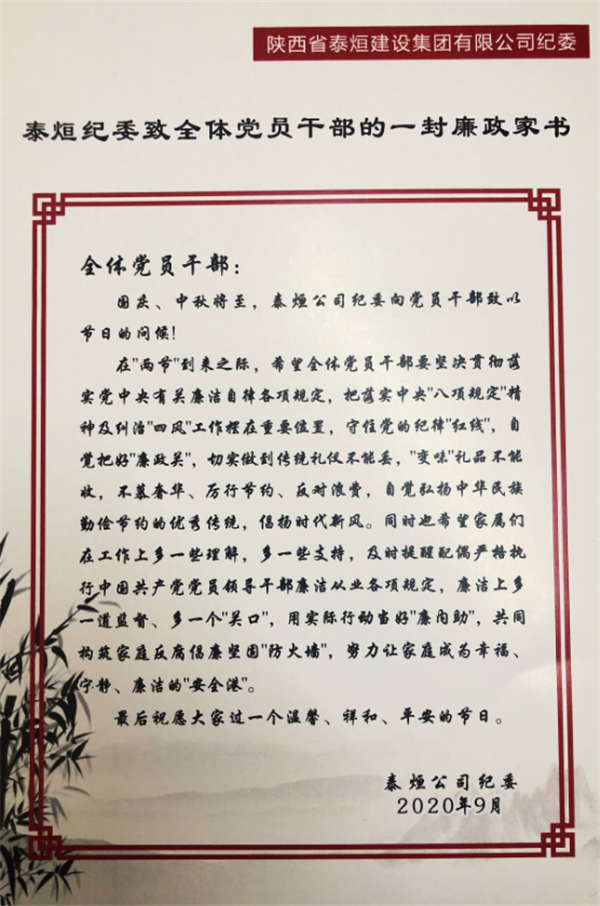 陕西省泰烜建设集团有限公司纪委
泰烜纪委致全体党员干部的一封廉政家书
全体党员干部：
国庆、中秋将至，泰烜公司纪委向党员干部致以
节日的问候！
在"两节"到来之际，希望全体党员干部要坚决贯彻落
实党中央有关廉洁自律各项规定，把落实中央"八项规定"精
神及纠治"四风"工作摆在重要位置，守住党的纪律"红线"，自
觉把好"廉政关"，切实做到传统礼仪不能丢，"变味"礼品不能
收，不慕奢华、厉行节约、反对浪费，自觉弘扬中华民族
勤俭节约的优秀传统，倡扬时代新风。同时也希望家属们
在工作上多一些理解，多一些支持，及时提醒配偶严格执
行中国共产党党员领导干部廉洁从业各项规定，廉洁上多
一道监督、多一个"关口"，用实际行动当好"廉内助"，共同
构筑家庭反腐倡廉坚固"防火墙"，努力让家庭成为幸福、
宁静、廉洁的"安全港"。
最后祝愿大家过一个温馨、祥和、平安的节日。
泰烜公司纪委
2020年9月